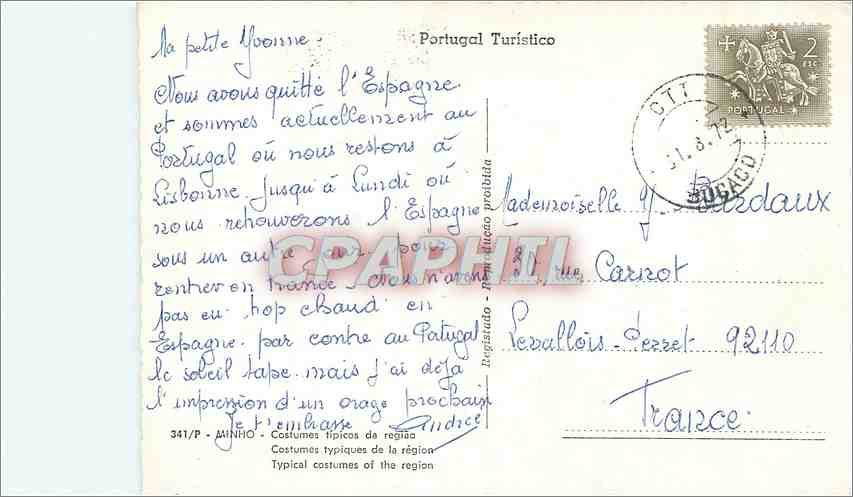 Portugal Turístico
Ma petite Yvonne.
Nous avons quitté l'Espagne
et sommes actuellement au
Portugal où nous restons à
Lisbonne. Jusqu'à Lundi où
nous retrouverons l'Espagne
sous un autre pour
rentrer en France. Nous n'avons
pas eu trop chaud en
Espagne. par contre au Portugal
le soleil tape. mais j'ai déjà
l'impression d'un orage prochain
Je t'embrasse
341/P - MINHO - Costumes típicos da região
Costumes typiques de la région
Typical costumes of the region
Registado - Reprodução proibida
CPAPHIL
2
ESC
PORTUGAL
CTT
31.8.72
BUÇACO
Mademoiselle Y
rue Carnot
Levallois-Perret 92110
France.